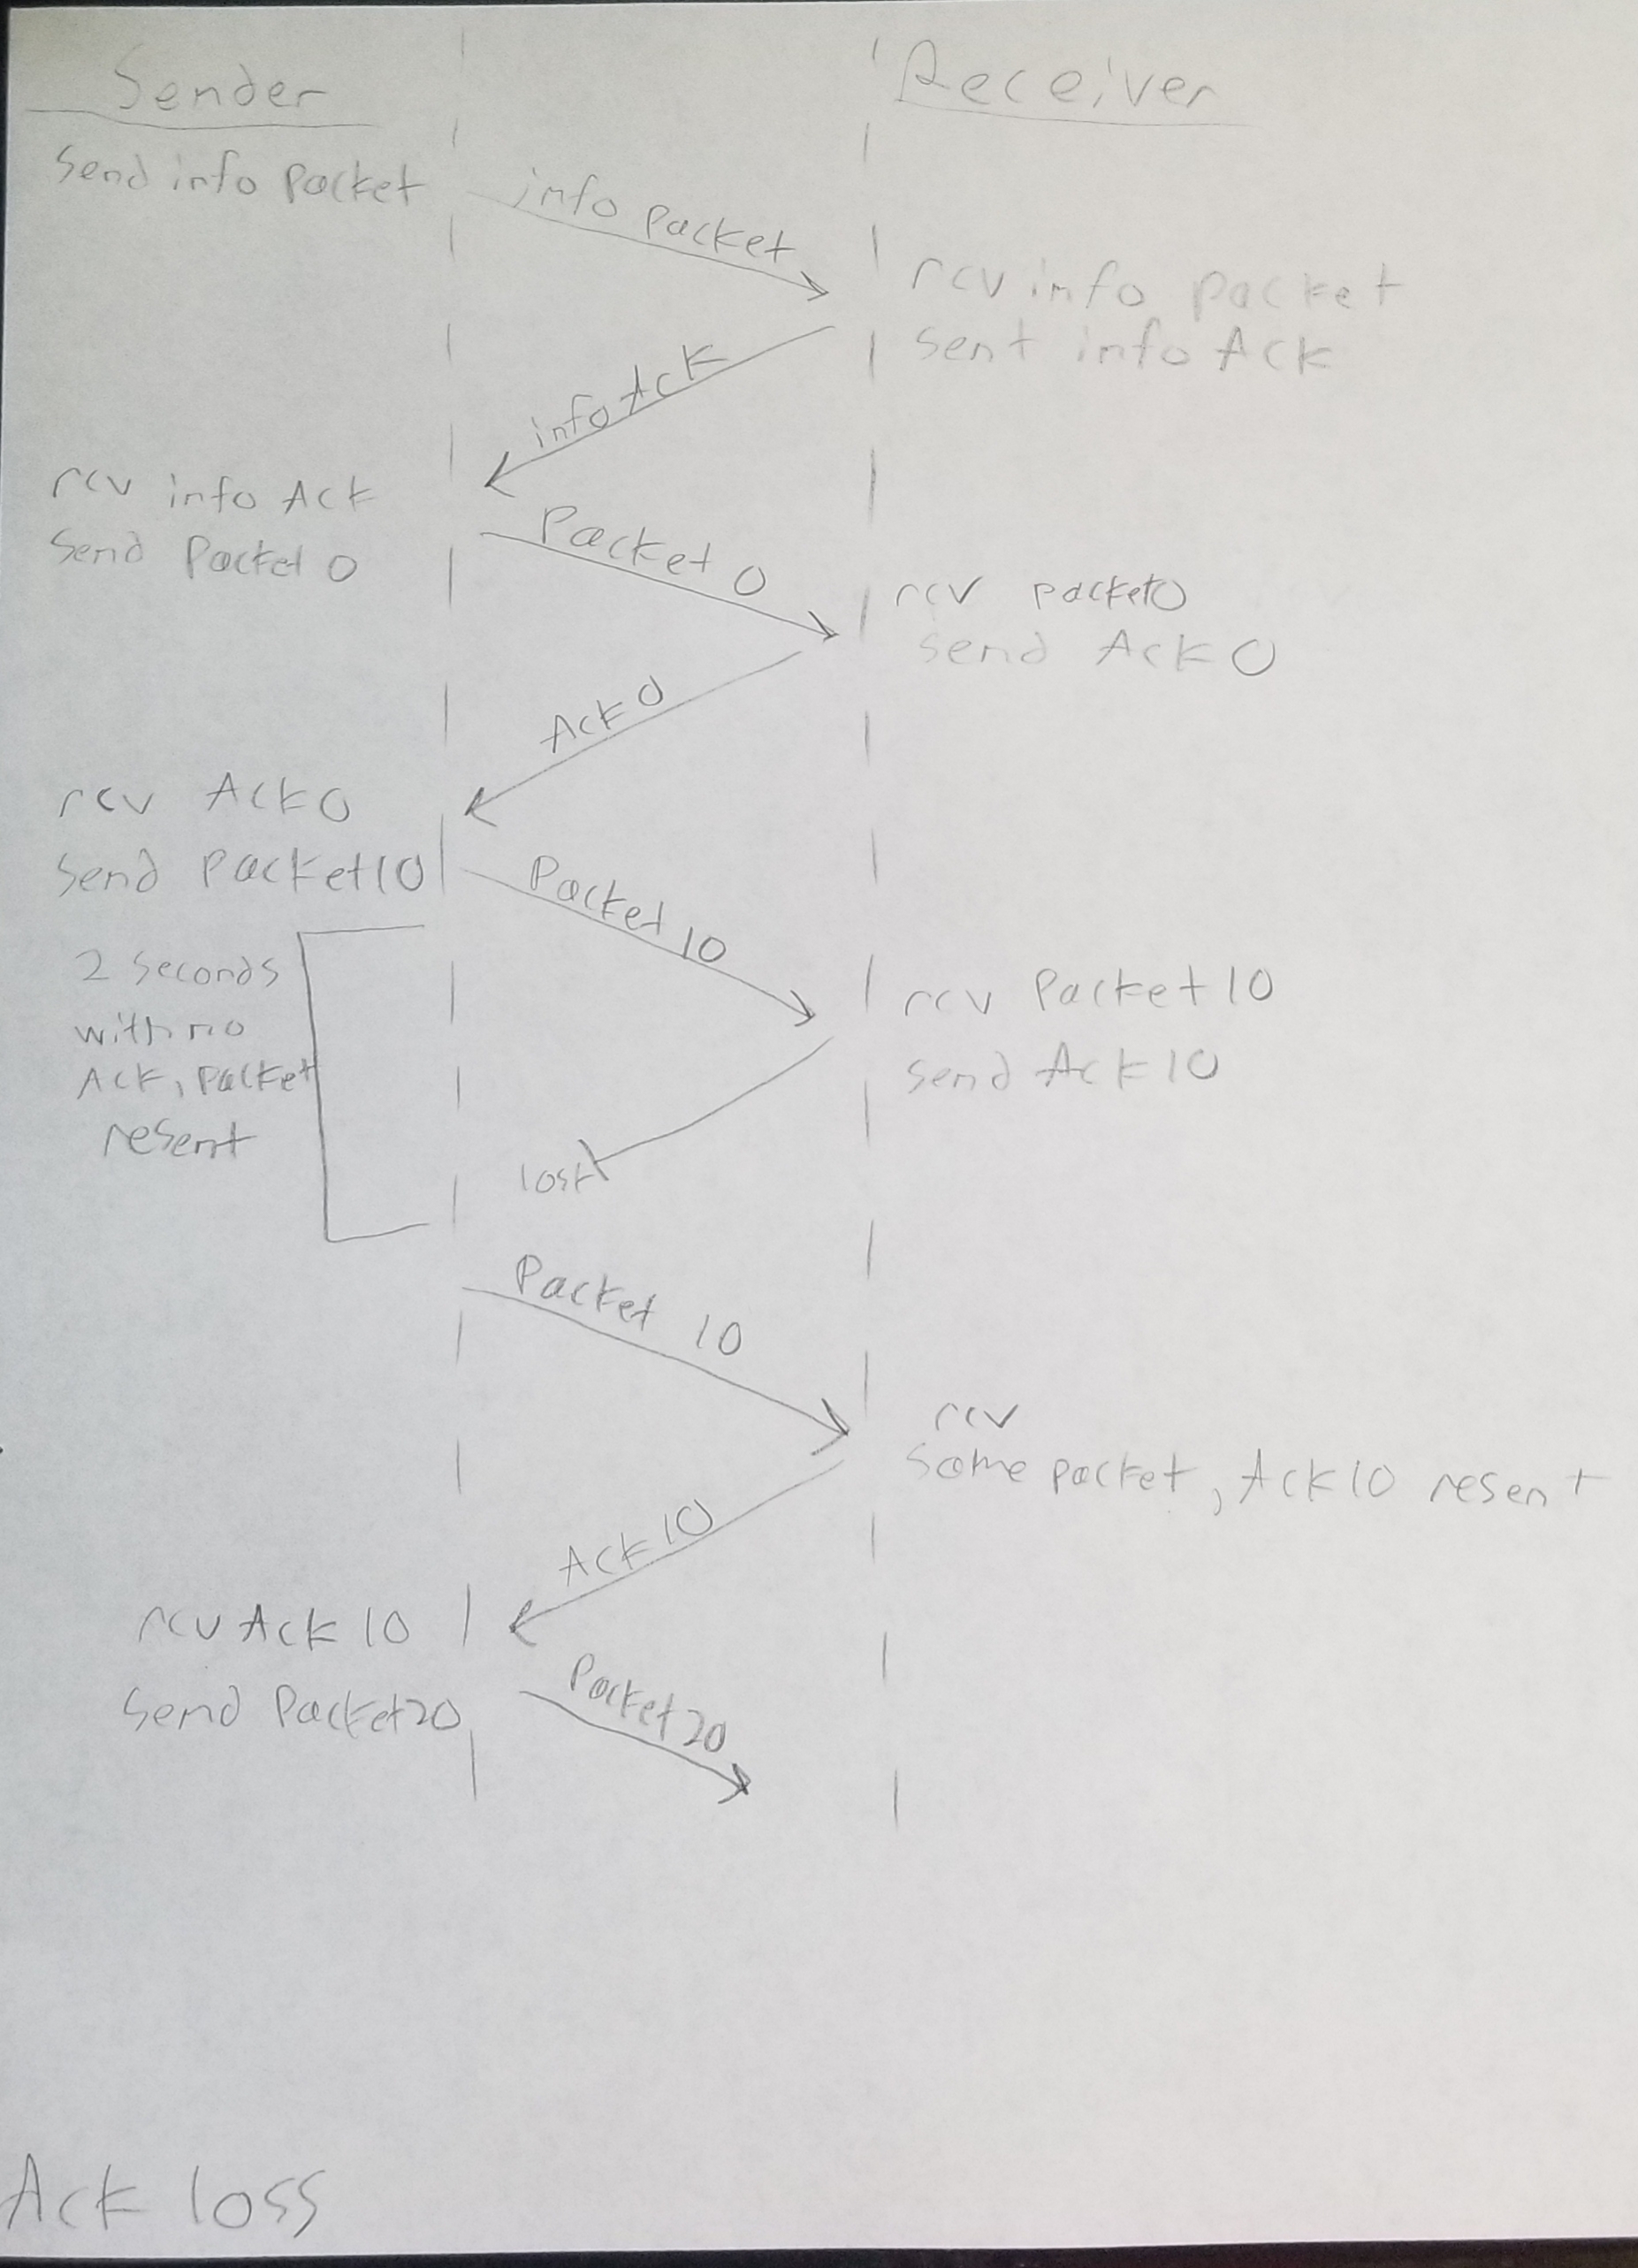 Sender
Receiver
Send info Packet
info Packet
rcv info packet
sent info Ack
info Ack
rcv info Ack
Send Packet 0
Packet 0
rcv packet0
send Ack 0
Ack 0
rcv Ack 0
Send Packet 10
Packet 10
rcv Packet 10
send Ack 10
2 seconds
with no
Ack, packet
resent
lost
Packet 10
rcv
Same packet, Ack 10 resent
Ack 10
rcv Ack 10
Send Packet 20
Packet 20
Ack loss